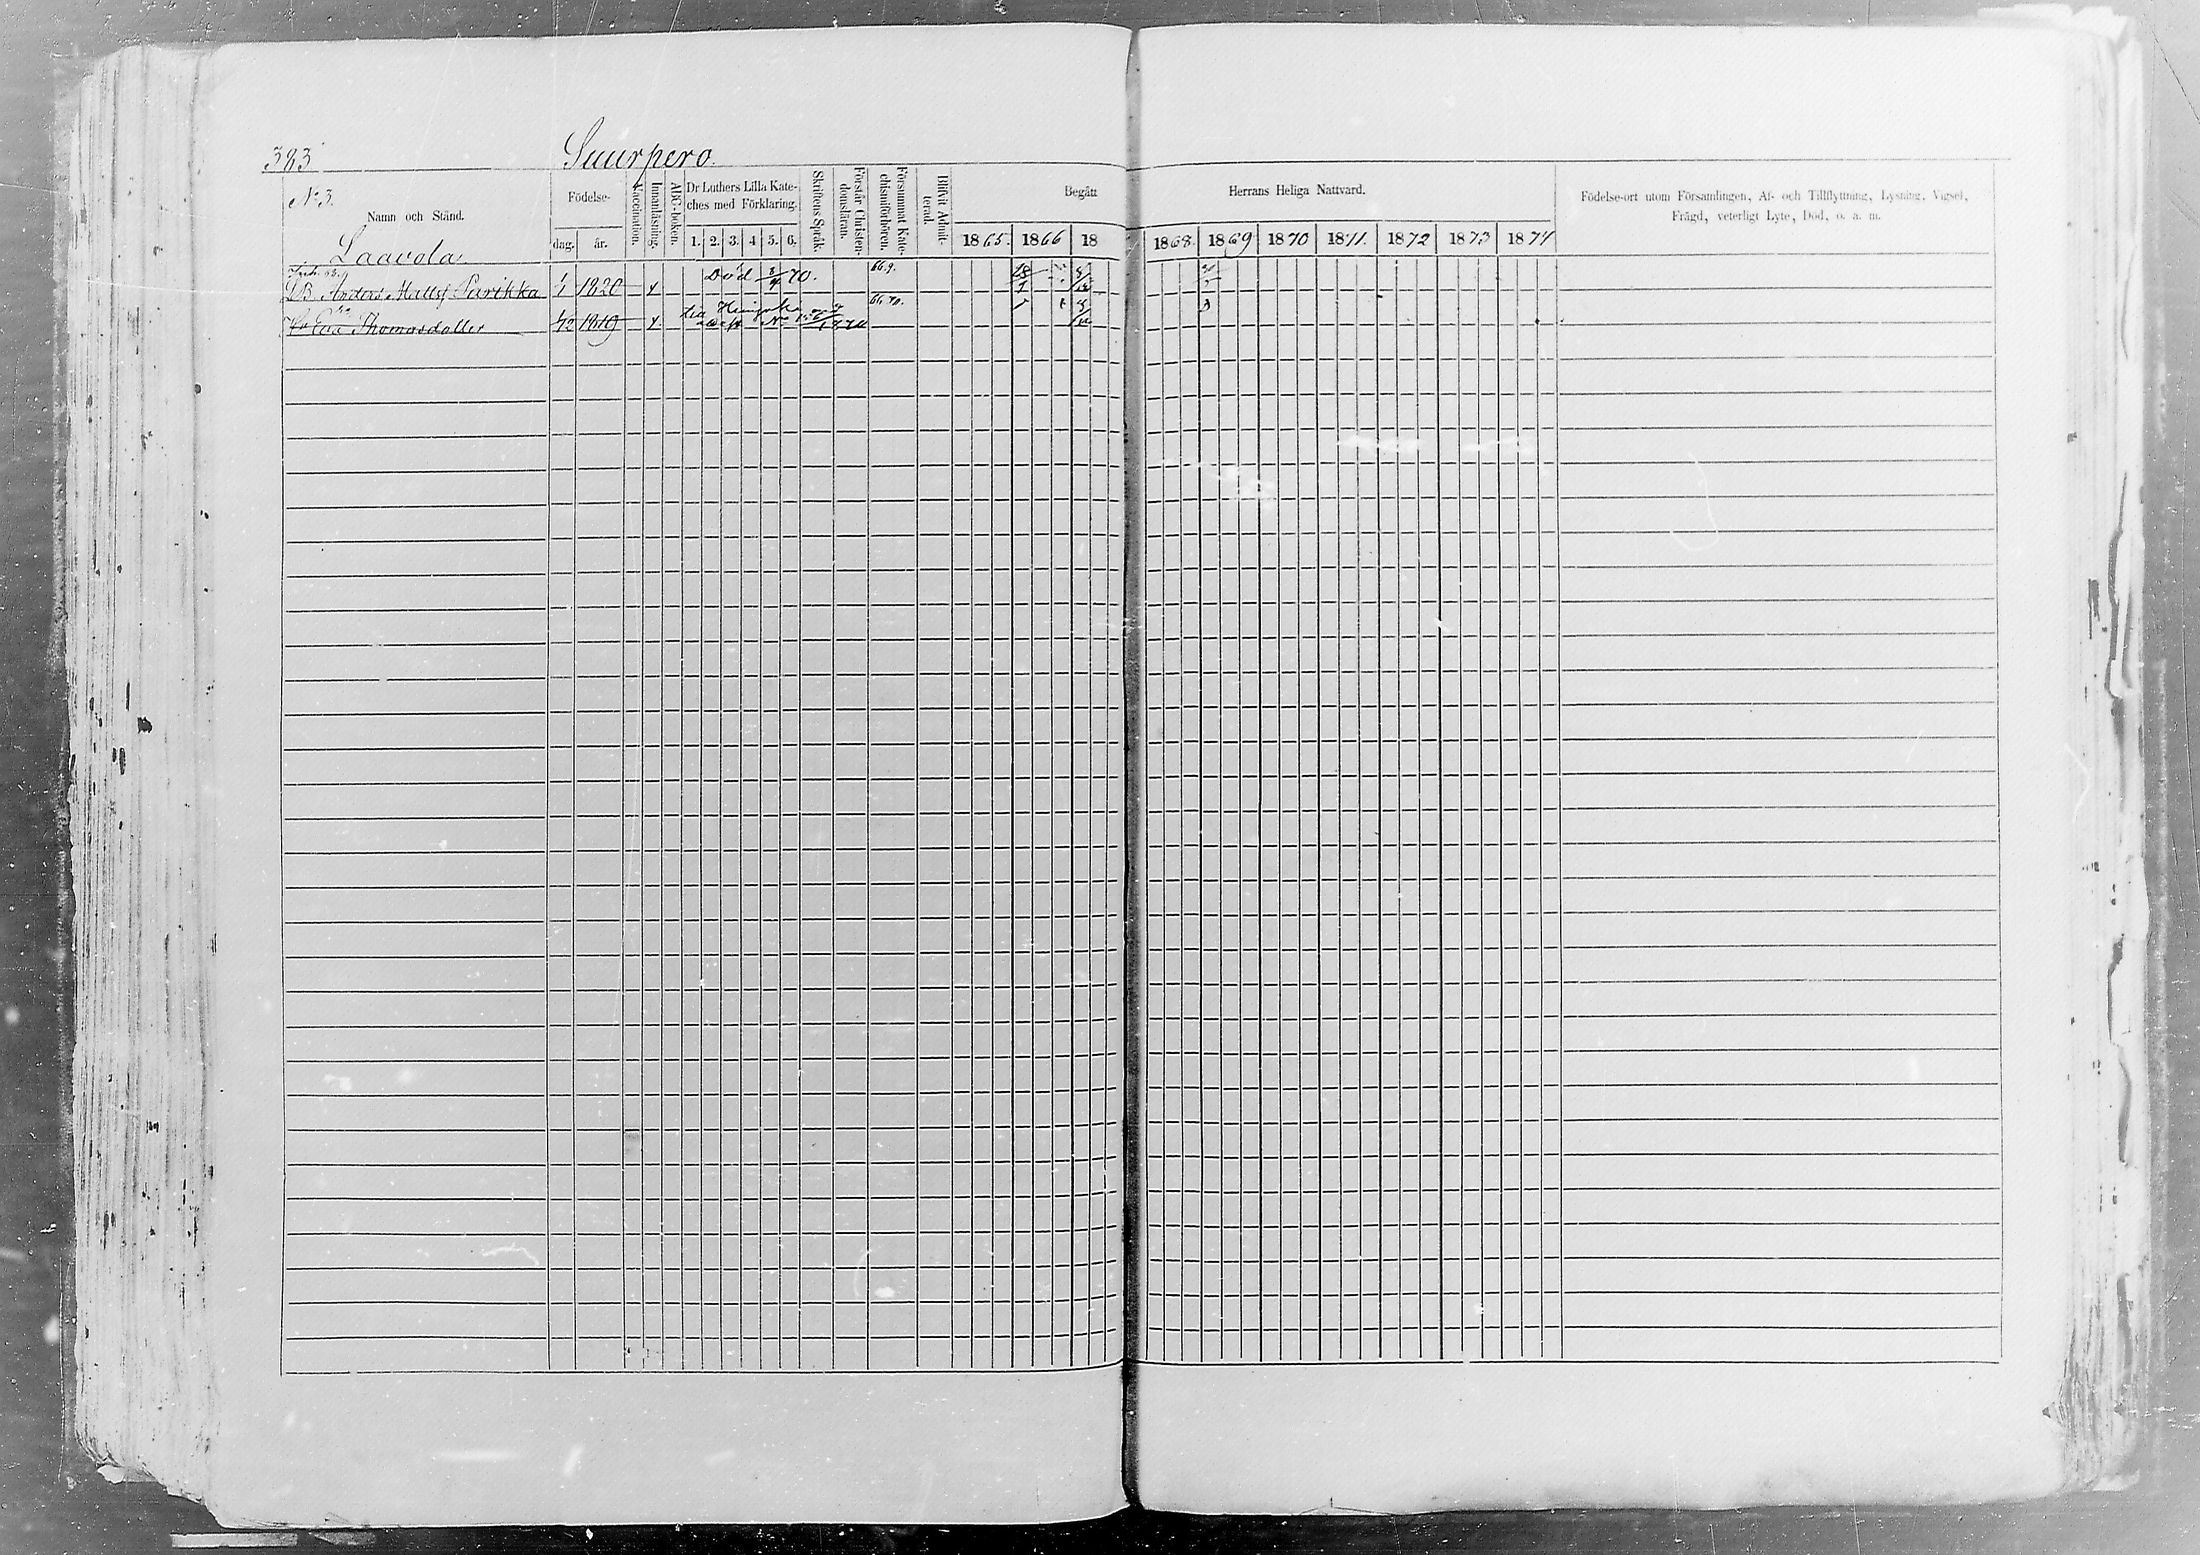 383
Suurpero
No 3.
Namn och Stånd.
Födelse-
dag. år.
Vaccination.
Innanläsning.
ABC-boken.
Dr Luthers Lilla Kate-
ches med Förklaring.
1. 2. 3. 4. 5. 6.
Skriftens Språk.
Förstår Christen-
domsläran.
Försummat Kate-
chismiförhören.
Blifvit Admit-
terad.
Begått Herrans Heliga Nattvard.
1865. 1866 18 1868. 1869 1870 1871. 1872 1873 1874
Födelse-ort utom Församlingen, Af- och Tillflyttning, Lysning, Vigsel,
Frägd, veterligt Lyte, Död, o. a. m.
Laavola
Anders Mattsf Parikka 1/1 1820 Död 3/4 70. 66.9.
Eva Thomasdotter 1/12 1819 66.70.